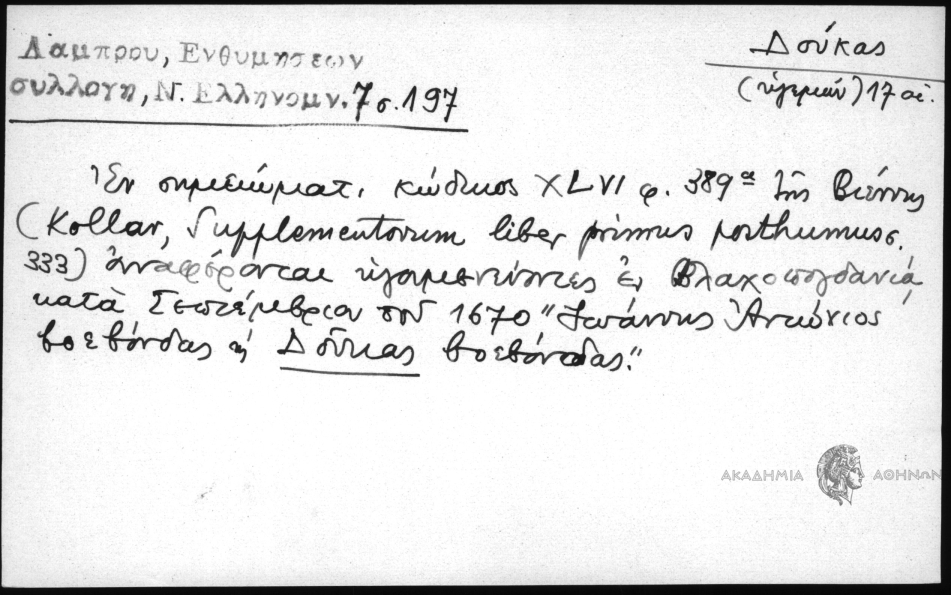 Λαμπρου, Ενθυμησεων
συλλογη, Ν. Ελληνομν. 7 σ. 197
Δούκας
(ἡγεμών) 17 αἰ.
Ἐν σημειώματ. κώδικος XLVI φ. 389α τῆς Βιέννης
(Kollar, Supplementorum liber primus posthumus σ.
333) ἀναφέρονται ἡγεμονεύοντες ἐν Βλαχομπογδανίᾳ
κατὰ Σεπτέμβριον τοῦ 1670 "Ἰωάννης Ἀντώνιος
βοεβόνδας καὶ Δούκας βοεβόνδας."
ΑΚΑΔΗΜΙΑ ΑΘΗΝΩΝ